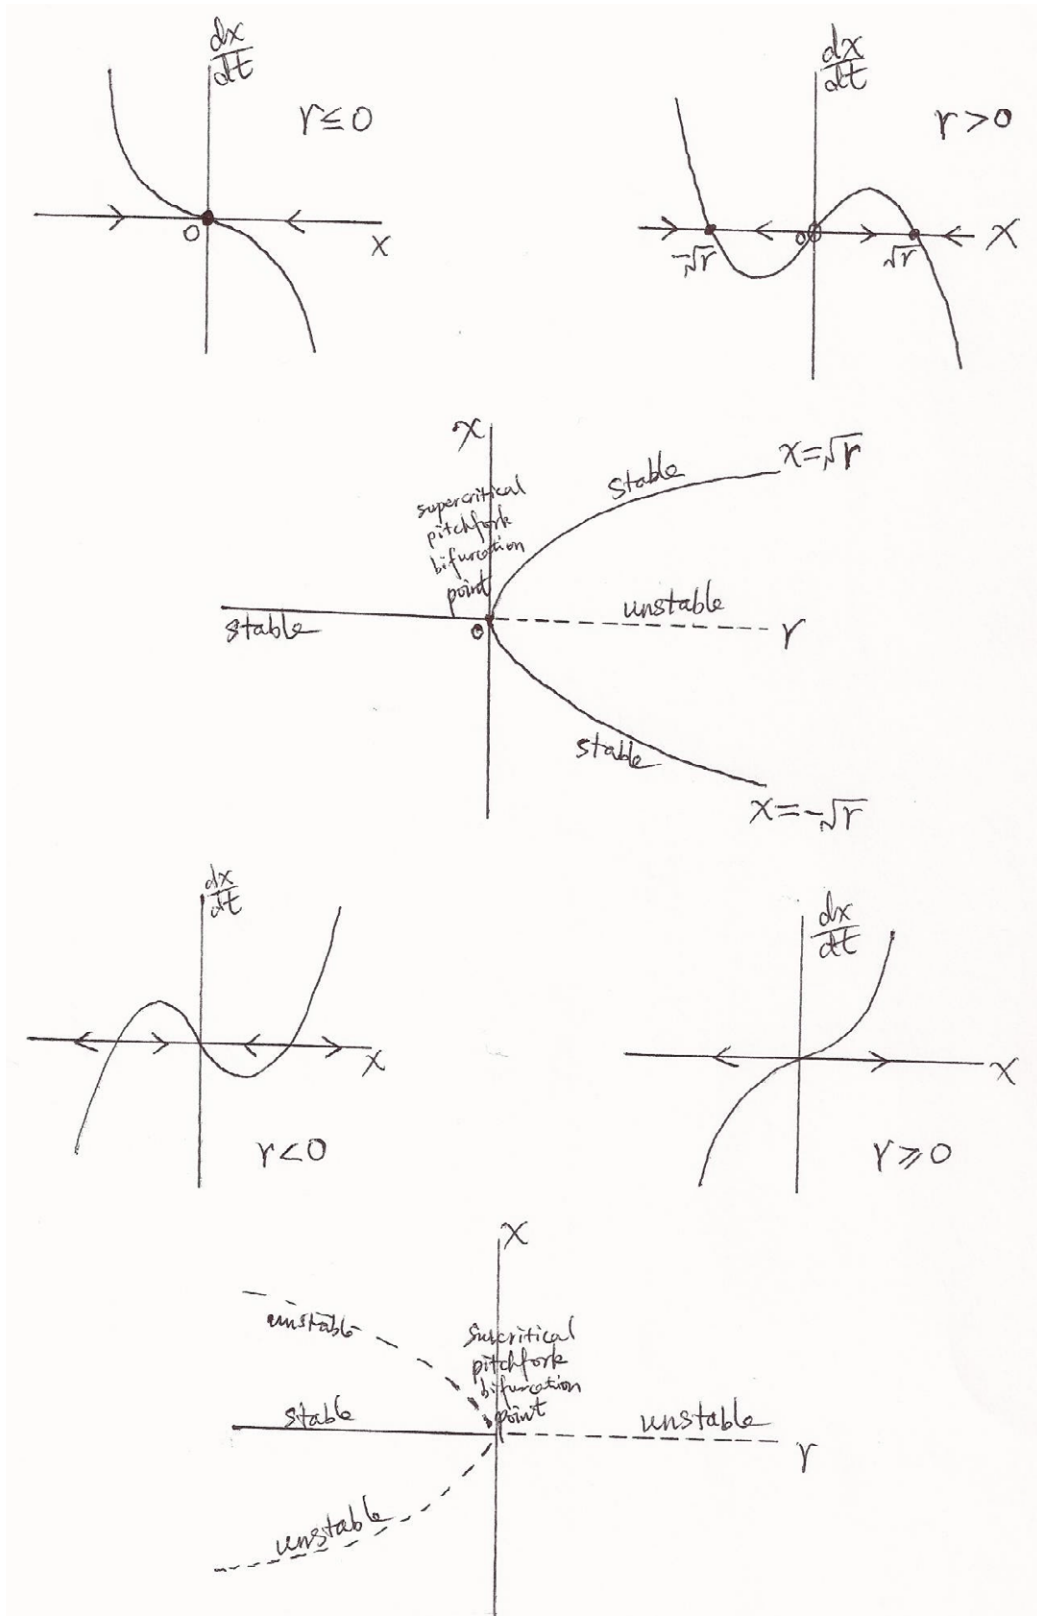 dx
dt
r≦0
0
x
dx
dt
r>0
-√r
0
√r
x
x
supercritical
pitchfork
bifurcation
point
stable
x=√r
stable
0
unstable
r
stable
x=-√r
dx
dt
x
r<0
dx
dt
x
r⩾0
x
unstable
Surcritical
pitchfork
bifurcation
point
stable
unstable
r
unstable